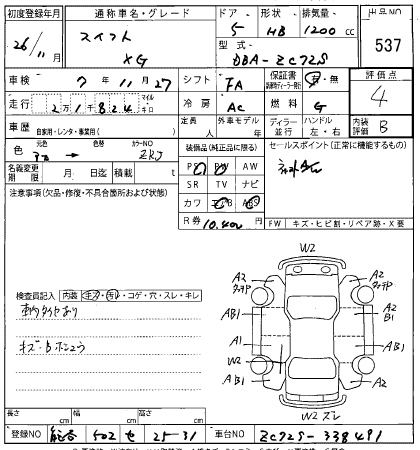 初度登録年月 通称車名・グレード ドア 形状 排気量 出品NO
26/11月 スイフト XG 5 HB 1200cc 537
型式 DBA-ZC72S
車検 7 11 27 シフト FA 保証書 有・無 評価点
走行 21824 マイル キロ 冷房 AC 燃料 G 4
車歴 自家用・レンタ・事業用( ) 定員 人 外車モデル 年 ディーラー 並行 ハンドル 左・右 内装評価 B
色 元色 色替 カラーNO ZRJ 装備品(純正品に限る) セールスポイント(正常に機能するもの)
名義変更期限 月 日迄 積載 t PS PW AW
注意事項(欠品・修復・不具合箇所および状態) SR TV ナビ
カワ エアB ABS
R券 10,400 FW キズ・ヒビ割・リペア跡・X要
W2
A2 A2
検査員記入 内装 コゲ・穴・スレ・キレ
AB1 A2 B1
A1
W2
AB1 AB1
A2 A2
W2
長さ cm 幅 cm 高さ cm
登録NO 502 せ 25-31 車台NO ZC72S-338491